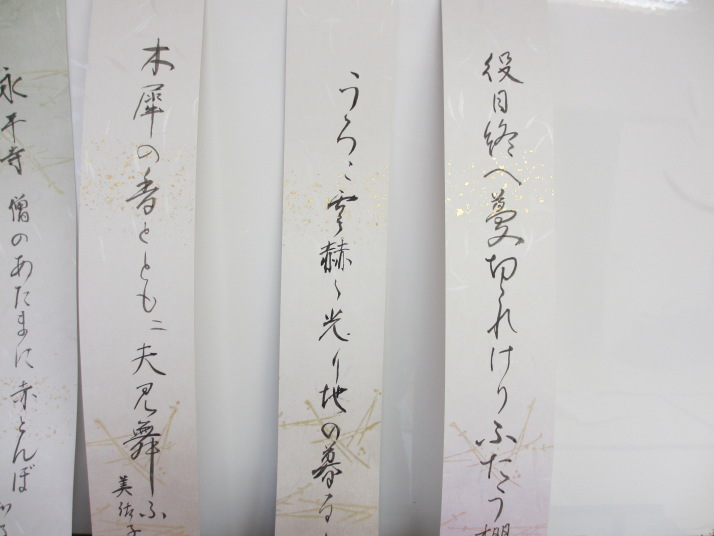 役目終へ蔓切れけりふたう
うろこ雲赫く光り地の暮る
木犀の香とともに夫見舞ふ
美依子
永平寺 僧のあたまに赤とんぼ